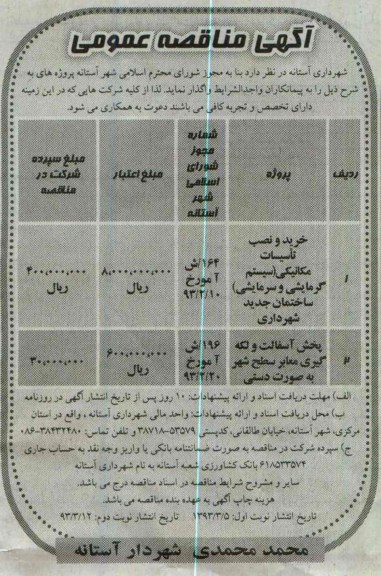 آگهی مناقصه عمومی
شهرداری آستانه در نظر دارد بنا به مجوز شورای محترم اسلامی شهر آستانه پروژه های به
شرح ذیل را به پیمانکاران واجدالشرایط واگذار نماید. لذا از کلیه شرکت هایی که در این زمینه
دارای تخصص و تجربه کافی می باشند دعوت به همکاری می شود.
ردیف
پروژه
شماره
مجوز
شورای
اسلامی
شهر
آستانه
مبلغ اعتبار
مبلغ سپرده
شرکت در
مناقصه
۱
خرید و نصب
تأسیسات
مکانیکی(سیستم
گرمایشی و سرمایشی)
ساختمان جدید
شهرداری
۱۶۴/ش
آ مورخ
۹۳/۲/۱۰
۸,۰۰۰,۰۰۰,۰۰۰
ریال
۴۰۰,۰۰۰,۰۰۰
ریال
۲
پخش آسفالت و لکه
گیری معابر سطح شهر
به صورت دستی
۱۹۶/ش
آ مورخ
۹۳/۲/۲۰
۶۰۰,۰۰۰,۰۰۰
ریال
۳۰,۰۰۰,۰۰۰
الف) مهلت دریافت اسناد و ارائه پیشنهادات: ۱۰ روز پس از تاریخ انتشار آگهی در روزنامه
ب) محل دریافت اسناد و ارائه پیشنهادات: واحد مالی شهرداری آستانه ، واقع در استان
مرکزی، شهر آستانه، خیابان طالقانی، کدپستی ۵۳۵۷۹-۳۸۷۱۸ و تلفن تماس: ۳۸۴۳۲۴۸۰-۰۸۶
ج) سپرده شرکت در مناقصه به صورت ضمانتنامه بانکی یا واریز وجه نقد به حساب جاری
۶۱۸۵۳۳۵۷۴ بانک کشاورزی شعبه آستانه به نام شهرداری آستانه
سایر و مشروح شرایط مناقصه در اسناد مناقصه درج می باشد.
هزینه چاپ آگهی به عهده بنده مناقصه می باشد.
تاریخ انتشار نوبت اول: ۱۳۹۳/۳/۵ تاریخ انتشار نوبت دوم: ۹۳/۳/۱۲
محمد محمدی شهردار آستانه